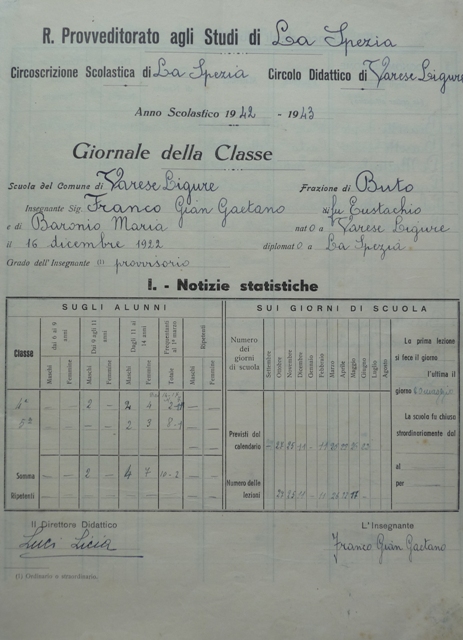 R. Provveditorato agli Studi di La Spezia
Circoscrizione Scolastica di La Spezia Circolo Didattico di Varese Ligure
Anno Scolastico 1942 - 1943
Giornale della Classe
Scuola del Comune di Varese Ligure Frazione di Buto
Insegnante Sig. Franco Gian Gaetano fu Eustachio
e di Baronio Maria nato a Varese Ligure
il 16 dicembre 1922 diplomato a La Spezia
Grado dell'Insegnante (1) provvisorio
I. - Notizie statistiche
SUGLI ALUNNI
Classe
dai 6 ai 9 anni
Dai 9 agli 11 anni
Dagli 11 ai 14 anni
Frequentanti al 1° marzo
Ripetenti
Maschi Femmine Maschi Femmine Maschi Femmine Totale Maschi Femmine
4ª - - 2 - 2 4
5ª - - - - 2 3 8-1 - -
Somma - - 2 - 4 7 10-2 - -
Ripetenti
SUI GIORNI DI SCUOLA
Numero dei giorni di scuola
Settembre Ottobre Novembre Dicembre Gennaio Febbraio Marzo Aprile Maggio Giugno Luglio Agosto
Previsti dal calendario
Numero delle lezioni
La prima lezione
si fece il giorno
l'ultima il
giorno
La scuola fu chiusa
straordinariamente dal
al
per
Il Direttore Didattico
Luci Licia
L'Insegnante
Franco Gian Gaetano
(1) Ordinario o straordinario.